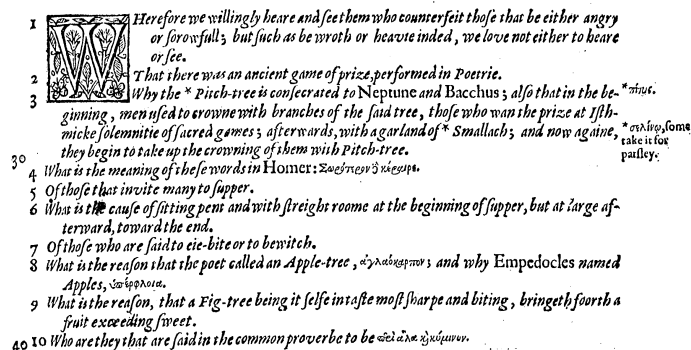 1 WHerefore we willingly heare and see them who counterfeit those that be either angry
or sorowfull; but such as be wroth or heavie inded, we love not either to heare
or see.
2 That there was an ancient game of prize, performed in Poetrie.
3 Why the * Pitch-tree is consecrated to Neptune and Bacchus; also that in the be- * πίτυς.
ginning, men used to crowne with branches of the said tree, those who wan the prize at Isth-
micke solemnitie of sacred games; afterwards, with a garland of * Smallach; and now againe, * σελίνῳ, some
they begin to take up the crowning of them with Pitch-tree. take it for
parsley.
30
4 What is the meaning of these words in Homer: Ζωρότερον δὲ κέραιρε.
5 Of those that invite many to supper.
6 What is the cause of sitting pent and with streight roome at the beginning of supper, but at large af-
terward, toward the end.
7 Of those who are said to eie-bite or to bewitch.
8 What is the reason that the poet called an Apple-tree, ἀγλαόκαρπον; and why Empedocles named
Apples, ὑπέρφλοια.
9 What is the reason, that a Fig-tree being it selfe in taste most sharpe and biting, bringeth foorth a
fruit exceeding sweet.
40 10 Who are they that are said in the common proverbe to be περὶ ἅλα κὶ κύμινον.